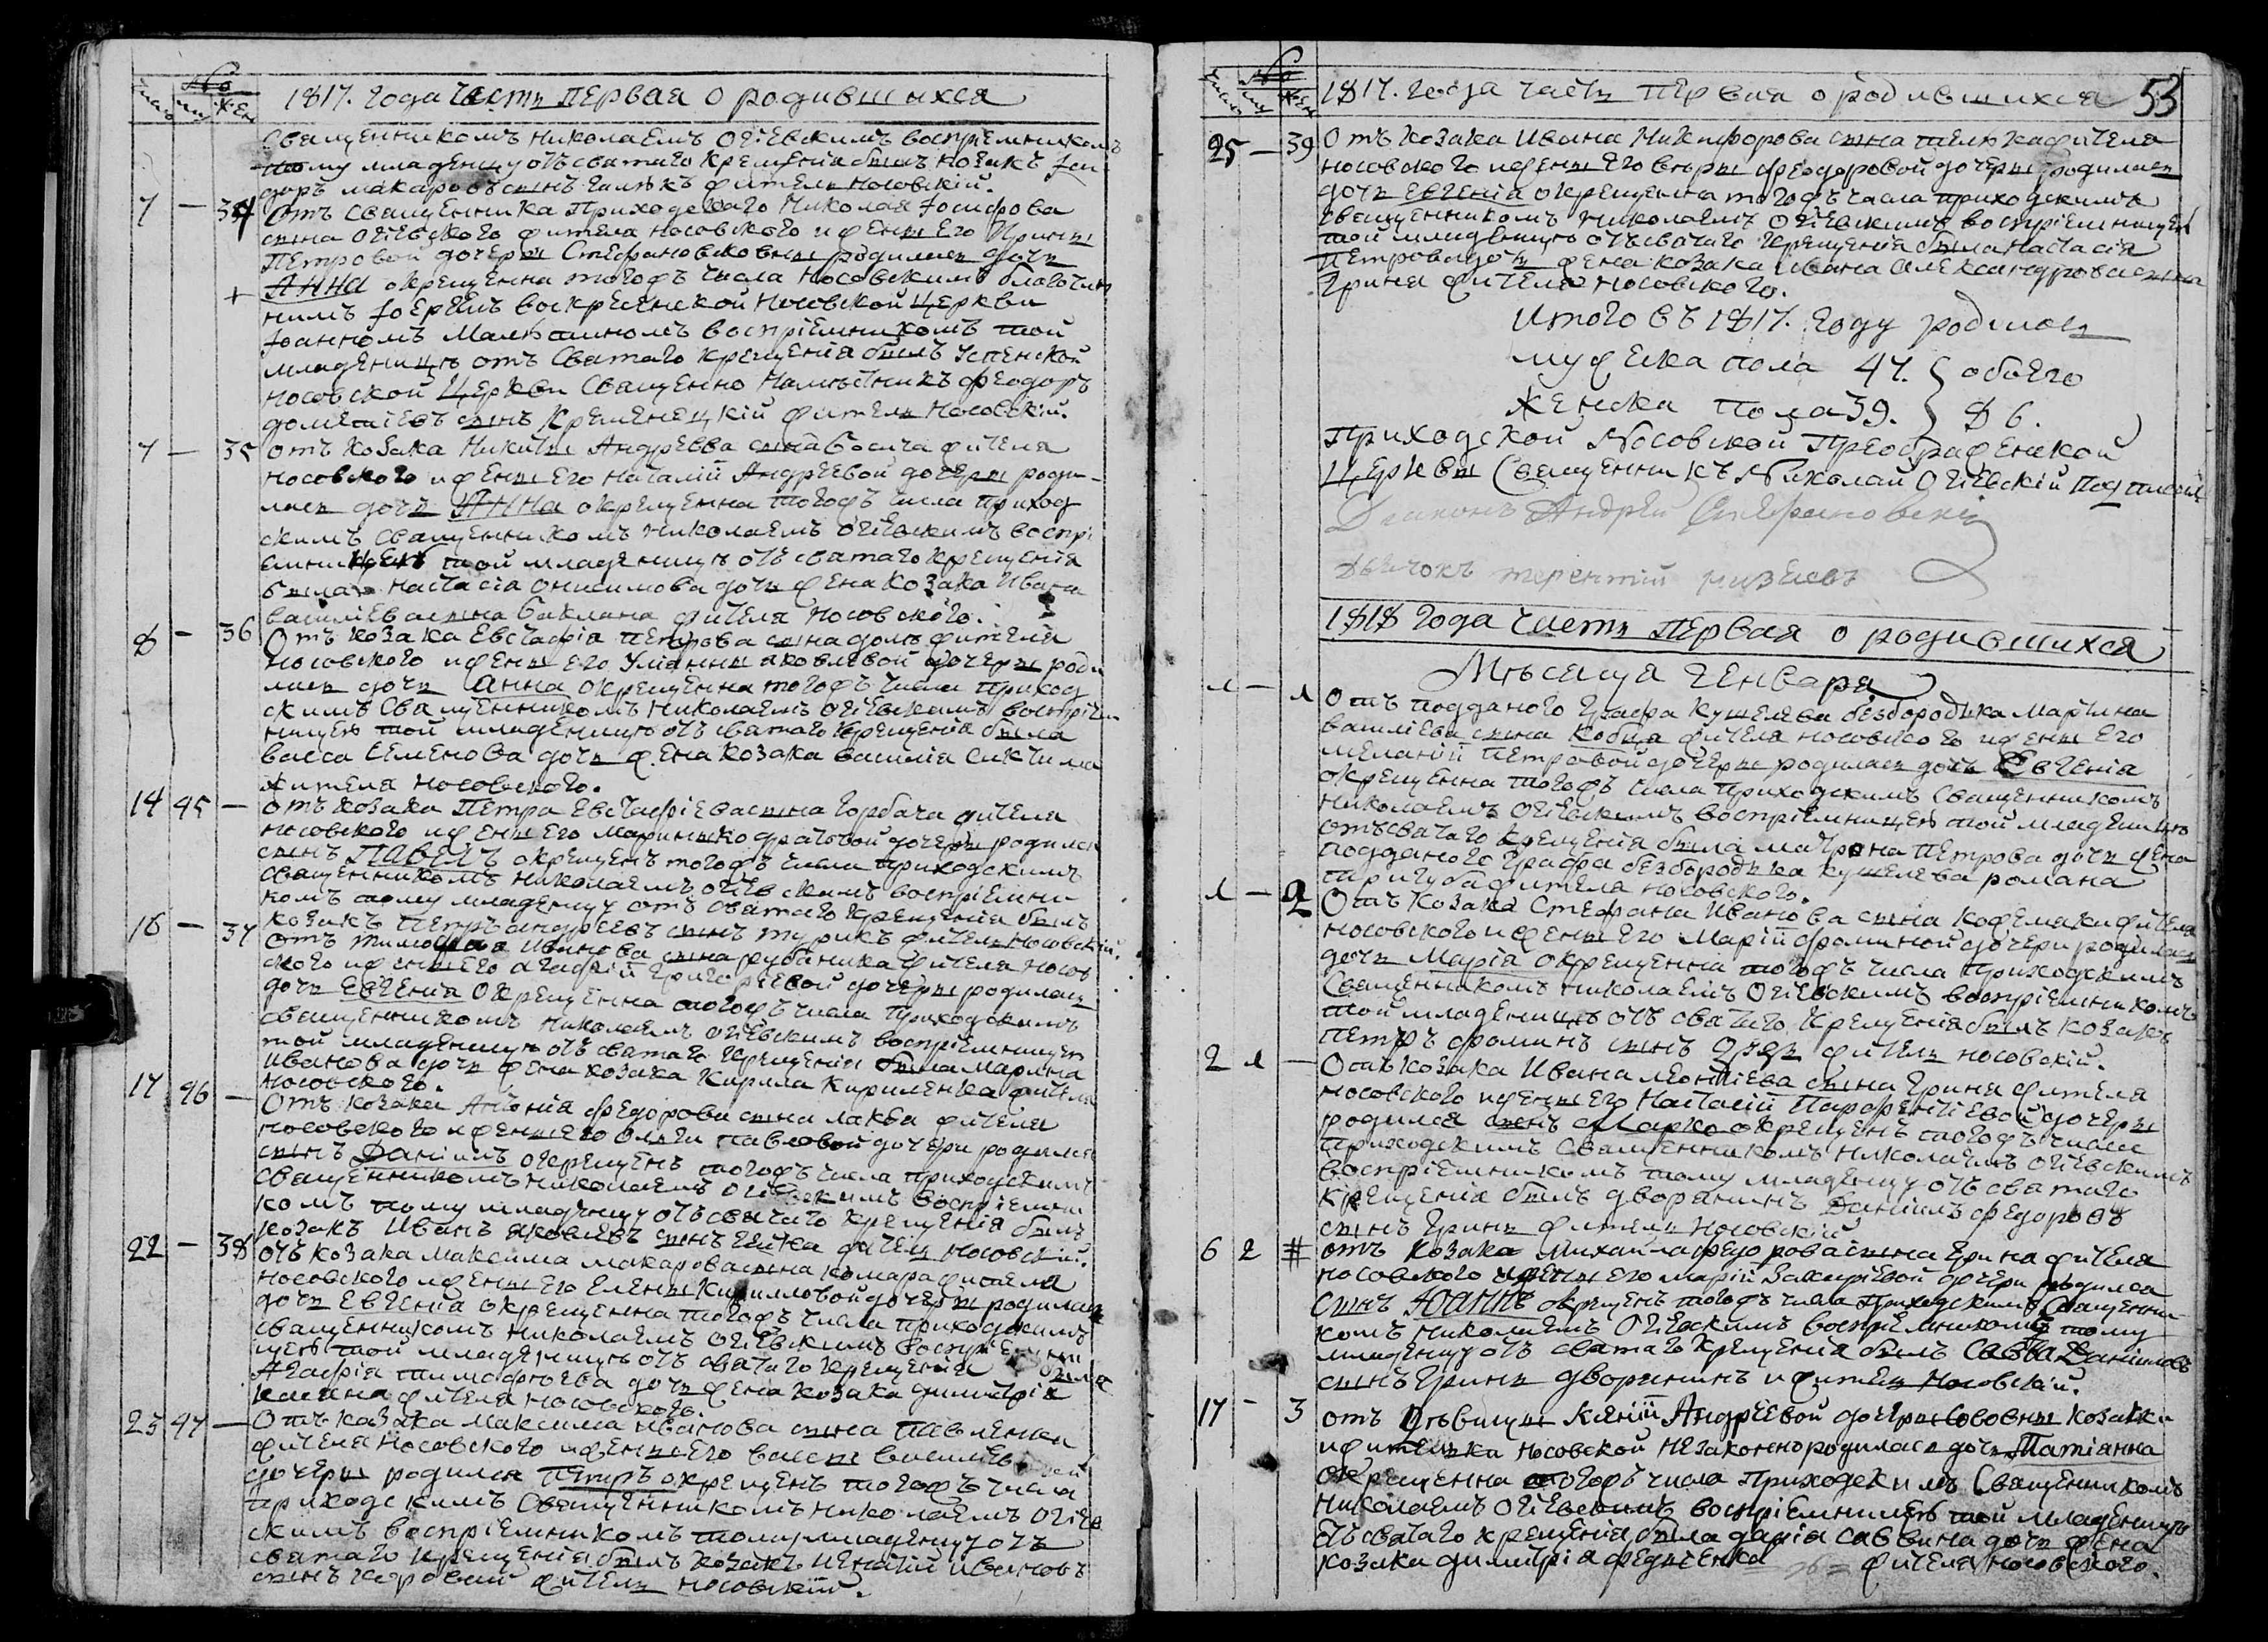 1817. года часть первая о родившихся
Священникомъ Николаемъ Огіевскимъ воспріемникомъ
тому младенцу отъ святаго крещенія былъ козакъ
макаровъ сынъ житель носовскій.
7 — 34 Отъ священника Приходскаго Николая Іосифова
сына Огіевского жителя носовского и жены его Ирины
Петровой дочеры Стефановсковны родилась дочь
Анна окрещенна тогожъ числа Носовскимъ благочин
нимъ Іереемъ воскресенской Носовской церкви
Іоанномъ воспріемникомъ той
младеницы отъ Святаго крещенія былъ Успенской
Носовской Церкви Священно Намѣстникъ Феодоръ
дометіевъ сынъ Кременецкій житель Носовскій.
7 — 35 отъ козака Никиты Андреева сына жителя
носовского и жены его Наталіи Андреевой дочеры роди-
лась дочь Анна окрещенна тогожъ числа приход
скимъ священникомъ Николаемъ Огіевскимъ воспрі
емницею той младеницы отъ святаго крещенія
была Настасіа Онисимова дочь жена козака Ивана
василіева сына баклана жителя носовского.
8 — 36 Отъ козака Евстафія Петрова сына жителя
носовского и жены его Уліанны яковлевой дочеры роди
лась дочь Анна окрещенна тогожъ числа приход
скимъ Священникомъ Николаемъ Огіевскимъ воспріем
ницею той младеницы отъ святаго крещенія была
васса Семенова дочь жена козака василія
жителя носовского.
14 45 — отъ козака Петра Евстафіева сына Горбача жителя
носовского и жены его Марины Кодратовой дочеры родился
сынъ Павелъ окрещенъ тогожъ числа приходскимъ
священникомъ николаемъ огіевскимъ воспріемни
комъ тому младенцу отъ святаго крещенія былъ
козакъ Петръ андреевъ сынъ турикъ житель носовскій.
16 — 37 Отъ Иванова сына рубаника жителя носов
ского и жены его агафіи григоріевой дочеры родилась
дочь Евгенія окрещенна тогожъ числа приходскимъ
священникомъ николаемъ огіевскимъ воспріемницею
той младеницы отъ святаго крещенія была Марина
Иванова дочь жена козака Кирила Кириленка жителя
носовского.
17 46 — Отъ козака Антонія федорова сына лакѣя жителя
носовского и жены его Олги павловой дочери родился
сынъ Даніилъ окрещенъ тогожъ числа приходскимъ
священникомъ николаемъ огіевскимъ воспріемни
комъ тому младенцу отъ святаго крещенія былъ
козакъ Иванъ яковлевъ сынъ житель носовскій.
22 — 38 отъ козака максима макарова сына комара жителя
носовского и жены его Елены Кирилловой дочеры родилась
дочь Евгенія окрещенна тогожъ числа приходскимъ
священникомъ николаемъ огіевскимъ воспріемни
цею той младеницы отъ святаго крещенія была
Агафія тимофеева дочь жена козака димитрія
жителя носовского.
23 47 — Отъ казака максима иванова сына павленка
жителя носовского и жены его вассы
дочеры родился Петръ окрещенъ тогожъ числа
приходскимъ Священникомъ николаемъ огіев
скимъ воспріемникомъ тому младенцу отъ
святаго крещенія былъ козакъ игнатій ивановъ
сынъ житель носовскій.
1817. года часть первая о родившихся 53
25 — 39 Отъ козака Ивана Никифорова сына жителя
носовского и жены его вѣры феодоровой дочеры родилась
дочь Евгеніа окрещенна тогожъ числа приходскимъ
священникомъ николаемъ огіевскимъ воспріемницею
той младеницы отъ святаго крещенія была Настасія
Петрова дочь жена козака Ивана Александрова сына
Гриня жителя носовского.
Итого въ 1817. году родилось
мужеска пола 47. } обоего
женска пола 39. } 86.
Приходской Носовской Преображенской
Церквы Священникъ Николай Огіевскій
Діаконъ Андрей Стефановскій
Дьячокъ терентій
1818 года часть первая о родившихся
Мѣсяца Генваря
1 — 1 Отъ подданого графа кушелева безбородька Мартина
василіева сына Кобца жителя носовского и жены его
меланіи петровой дочеры родилась дочь Евгеніа
окрещенна тогожъ числа приходскимъ священникомъ
николаемъ огіевскимъ воспріемницею той младеницы
отъ святаго крещенія была матрона петрова дочь жена
подданого графа безбородька кушелева романа
жителя носовского.
1 — 2 Отъ Козака Стефана Иванова сына кожемяки жителя
носовского и жены его Маріи фоминой дочери родилась
дочь Маріа окрещенна тогожъ числа приходскимъ
Священникомъ николаемъ огіевскимъ воспріемникомъ
той младеницы отъ святаго крещенія былъ козакъ
петръ фоминъ сынъ житель носовскій.
2 1 — Отъ козака Ивана леонтіева сына Гриня жителя
носовского и жены его Настасіи Парфентіевой дочеры
родился сынъ Марко окрещенъ тогожъ числа
приходскимъ Священникомъ николаемъ огіевскимъ
воспріемникомъ тому младенцу отъ святаго
крещенія былъ дворянинъ Даніилъ федоровъ
сынъ Гринь житель носовскій
6 2 # отъ козака Михайла федорова сына Гриня жителя
носовского и жены его маріи Захаріевой дочери родился
сынъ Іоаннъ окрещенъ тогожъ числа приходскимъ священни-
комъ николаемъ Огіевскимъ воспріемникомъ тому
младенцу отъ святаго крещенія былъ Савва Даніиловъ
сынъ Гринь дворянинъ и житель Носовскій.
17 — 3 отъ Дѣвицы Ксеніи Андреевой дочеры козачки
и жителька носовской незаконно родилась дочь Татіанна
окрещенна тогожъ числа приходскимъ Священникомъ
николаемъ огіевскимъ воспріемницею той младеницы
отъ святаго крещенія была дарія саввина дочь жена
козака димитріа жителя носовского.